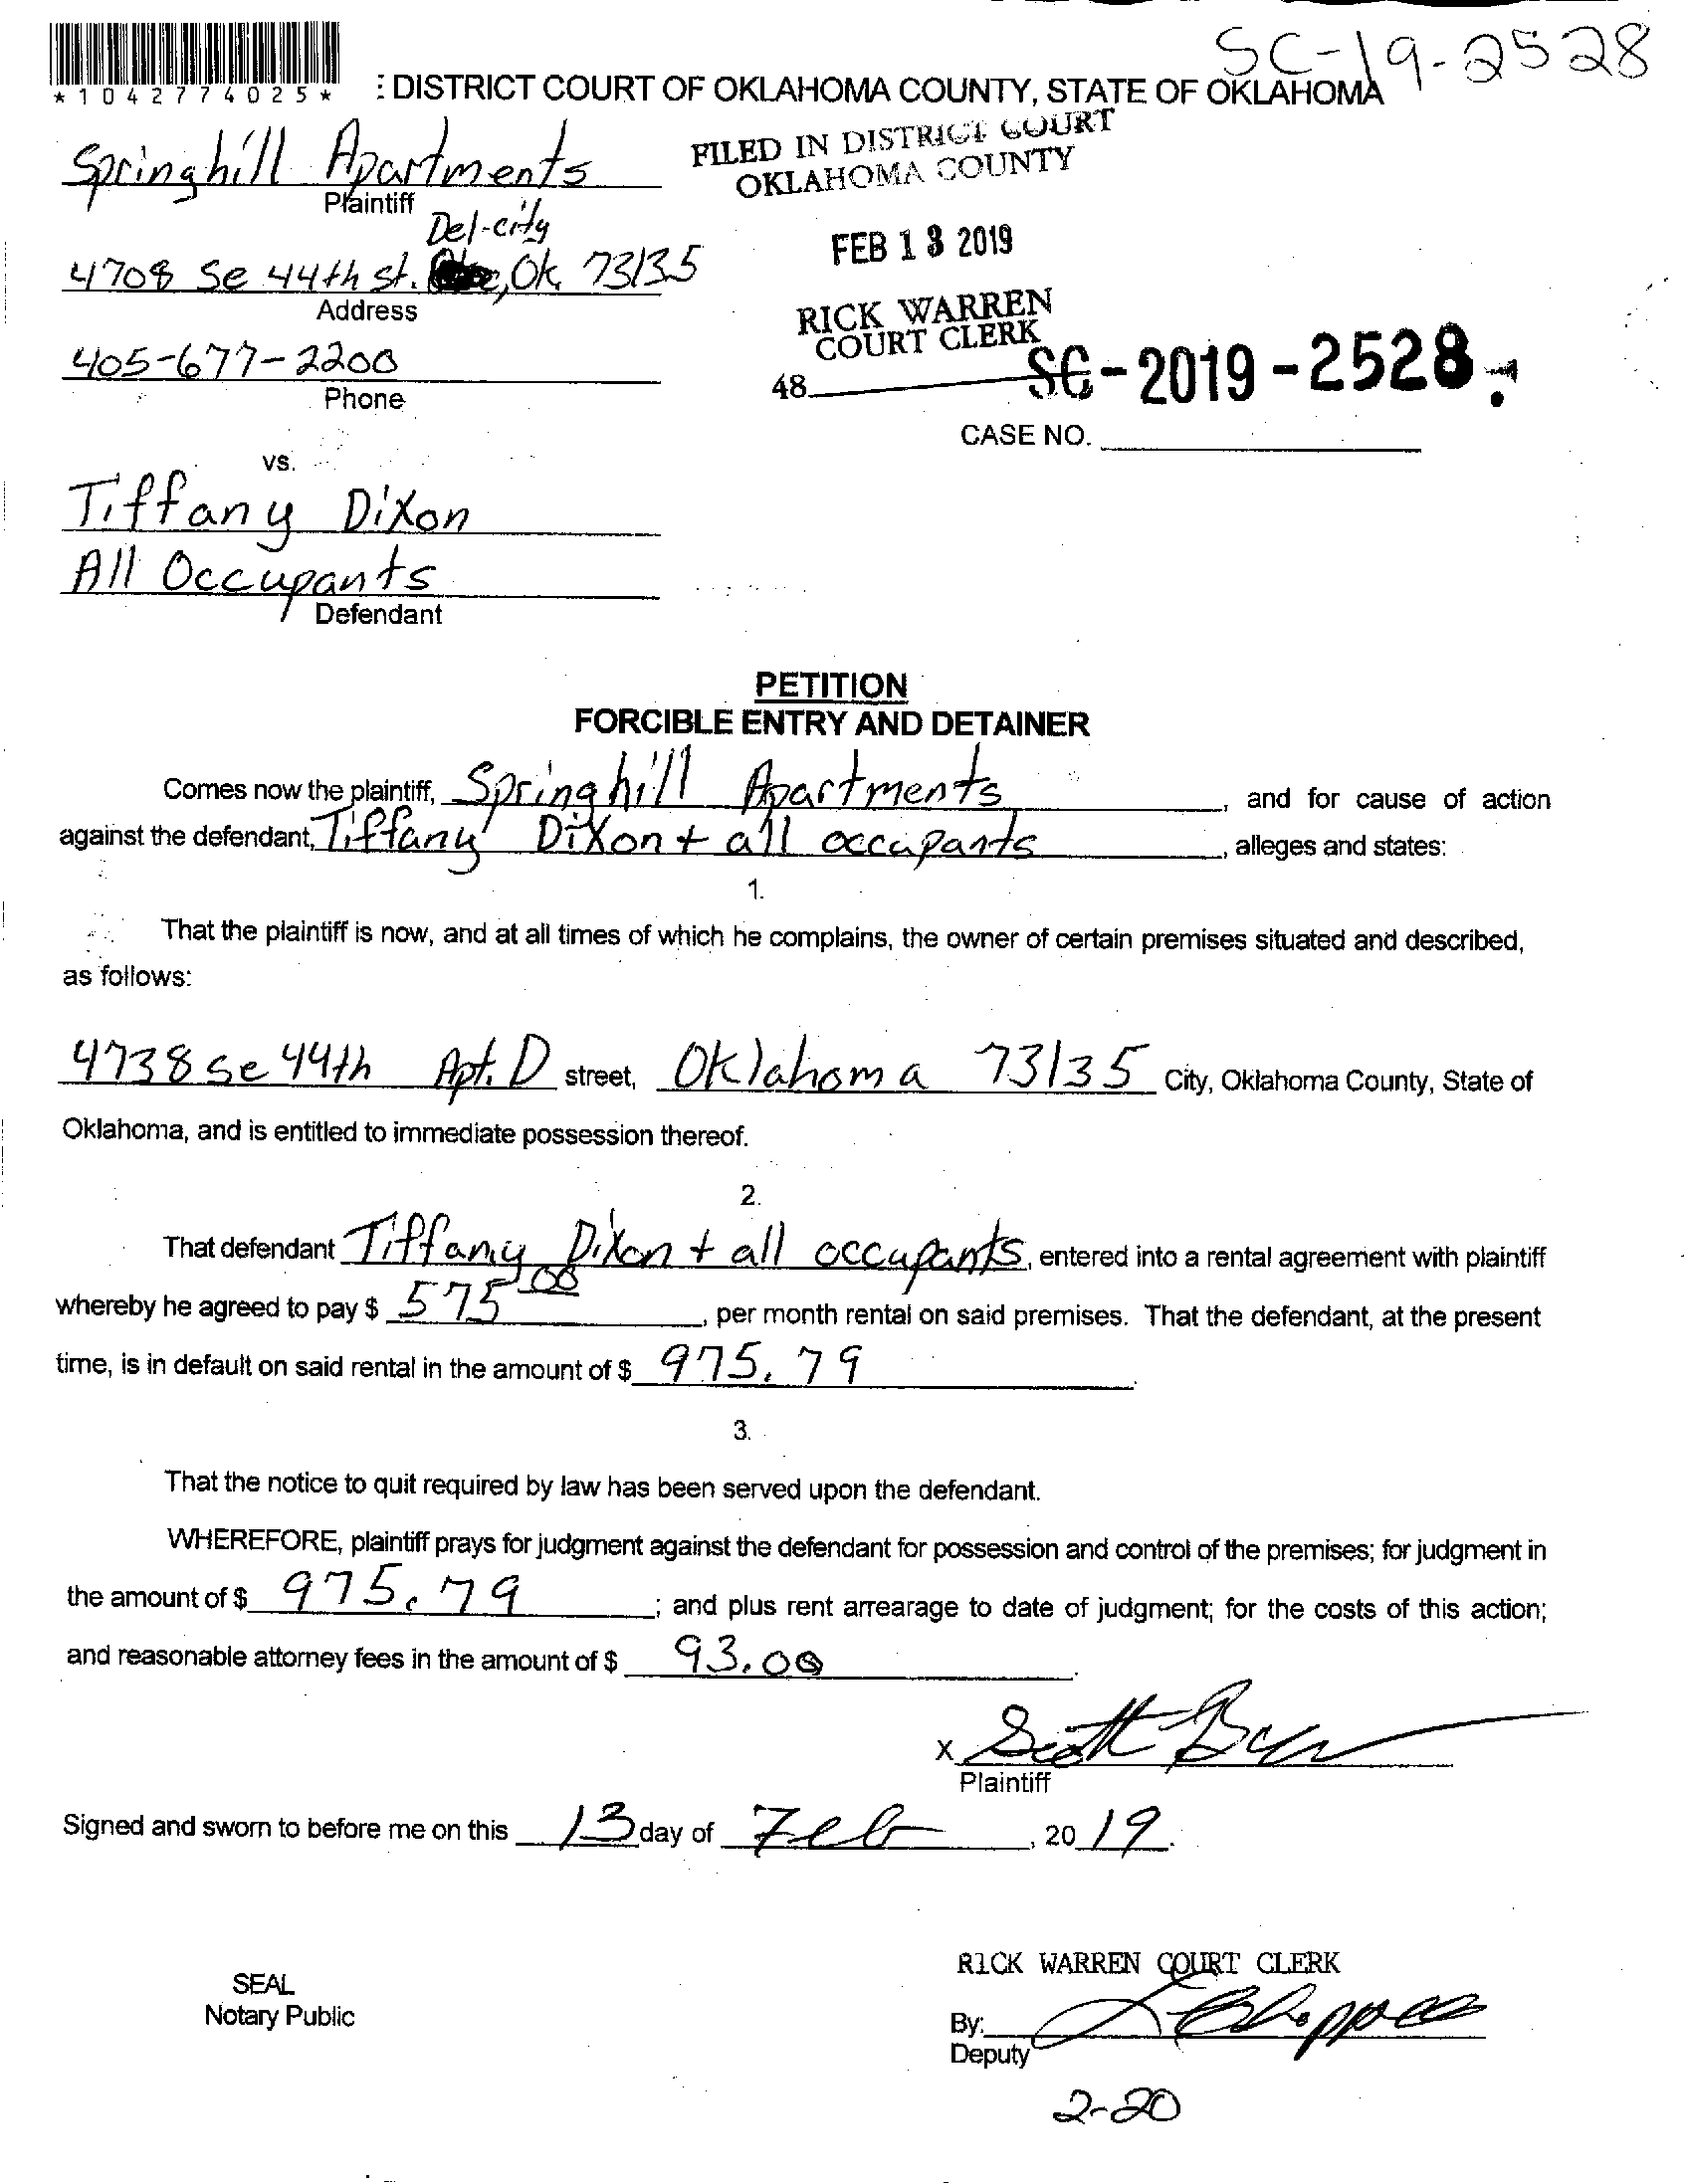 SC-19-2528
*1042774025*
: DISTRICT COURT OF OKLAHOMA COUNTY, STATE OF OKLAHOMA
Springhill Apartments
Plaintiff
FILED IN DISTRICT COURT
OKLAHOMA COUNTY
Del-city
4708 Se 44th st. , Ok 73135
Address
FEB 13 2019
RICK WARREN
COURT CLERK
405-677-2200
Phone
48
SC-2019-2528
CASE NO.
vs.
Tiffany Dixon
All Occupants
Defendant
PETITION
FORCIBLE ENTRY AND DETAINER
Comes now the plaintiff, Springhill Apartments, and for cause of action
against the defendant, Tiffany Dixon + all occupants, alleges and states:
1.
That the plaintiff is now, and at all times of which he complains, the owner of certain premises situated and described,
as follows:
4738 se 44th Apt. D street, Oklahoma 73135 City, Oklahoma County, State of
Oklahoma, and is entitled to immediate possession thereof.
2.
That defendant Tiffany Dixon + all occupants, entered into a rental agreement with plaintiff
whereby he agreed to pay $ 575 00, per month rental on said premises. That the defendant, at the present
time, is in default on said rental in the amount of $ 975.79.
3.
That the notice to quit required by law has been served upon the defendant.
WHEREFORE, plaintiff prays for judgment against the defendant for possession and control of the premises; for judgment in
the amount of $ 975.79; and plus rent arrearage to date of judgment; for the costs of this action;
and reasonable attorney fees in the amount of $ 93.00.
X Scott
Plaintiff
Signed and sworn to before me on this 13 day of Feb, 2019.
RICK WARREN COURT CLERK
SEAL
Notary Public
By:
Deputy
2-20